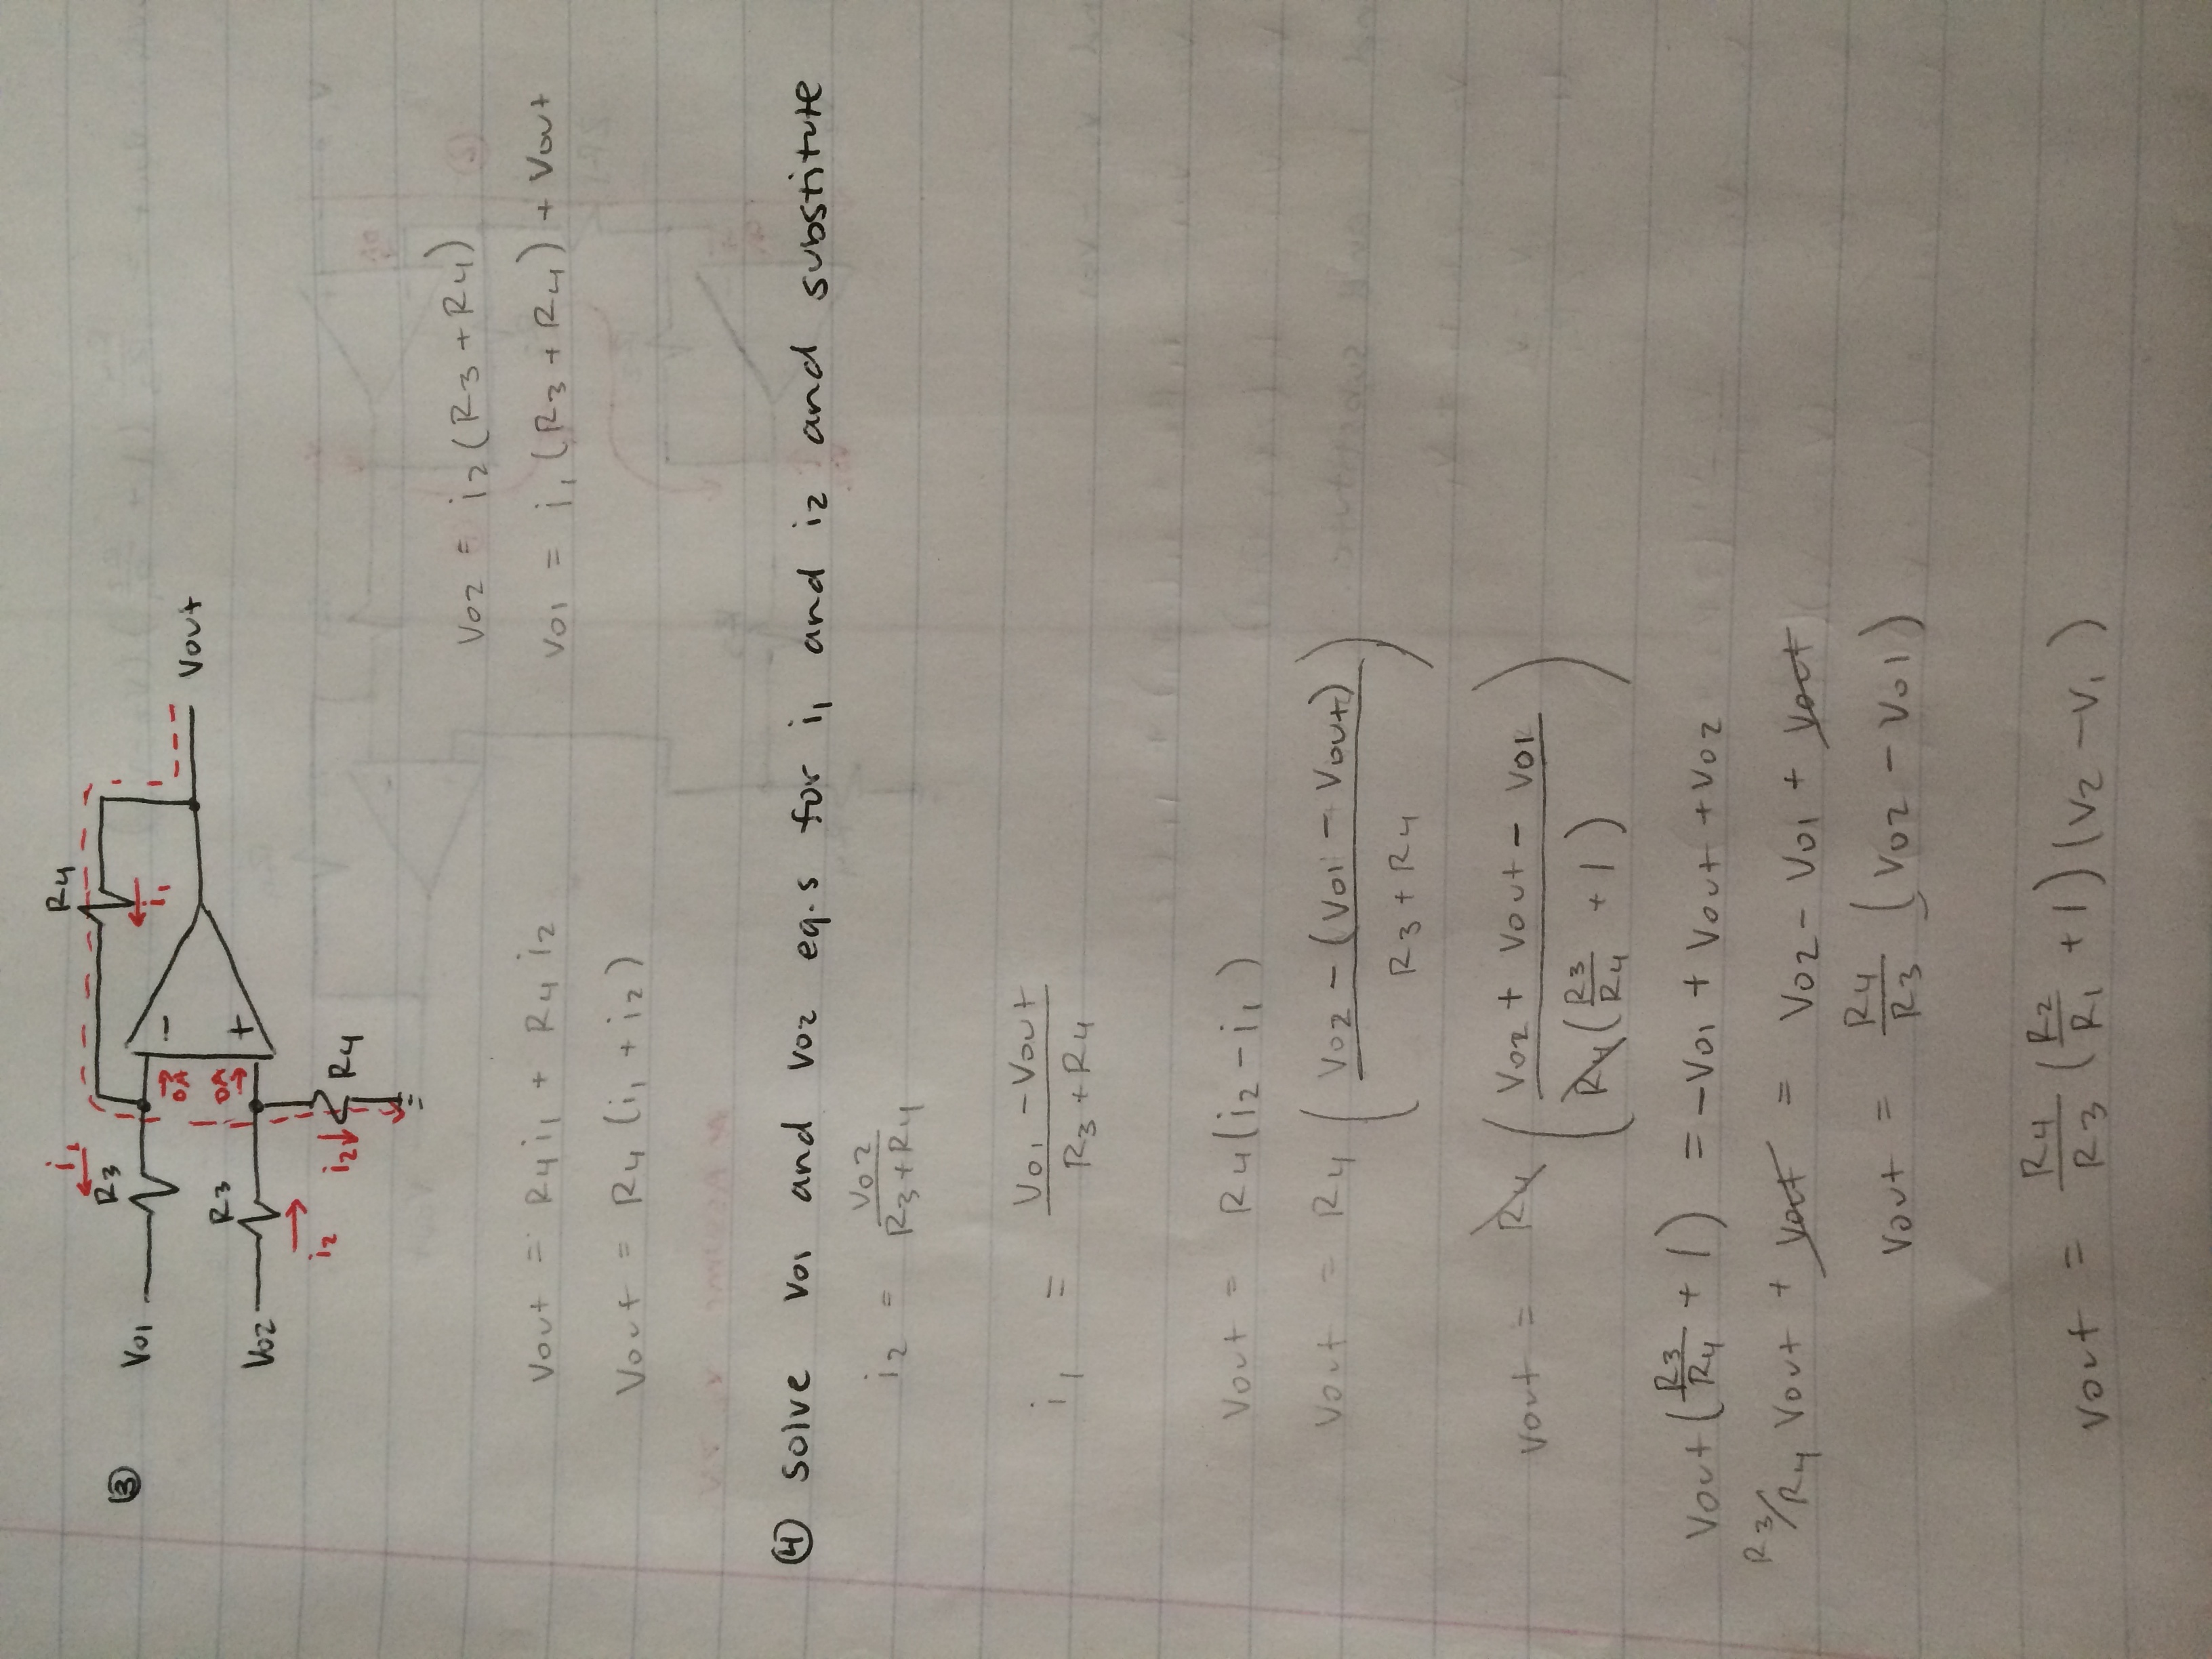 ③
i₁
R4
R3
Vo1
i₁
0A
−
Vout
R3
0A
+
Vo2
i2
i2
R4
Vo2 = i2(R3+R4)
Vout = R4i₁ + R4 i2
Vo1 = i₁(R3+R4) + Vout
Vout = R4 (i₁ + i2)
④ Solve Vo1 and Vo2 eq.s for i₁ and i2 and substitute
i2 = Vo2 / (R3+R4)
i₁ = (Vo1 − Vout) / (R3+R4)
Vout = R4(i2 − i₁)
Vout = R4 ( (Vo2 − (Vo1 − Vout)) / (R3+R4) )
Vout = R4 ( (Vo2 + Vout − Vo1) / (R4(R3/R4 + 1)) )
Vout(R3/R4 + 1) = −Vo1 + Vout + Vo2
R3/R4 Vout + Vout = Vo2 − Vo1 + Vout
Vout = R4/R3 (Vo2 − Vo1)
Vout = R4/R3 (R2/R1 + 1)(V2 − V₁)